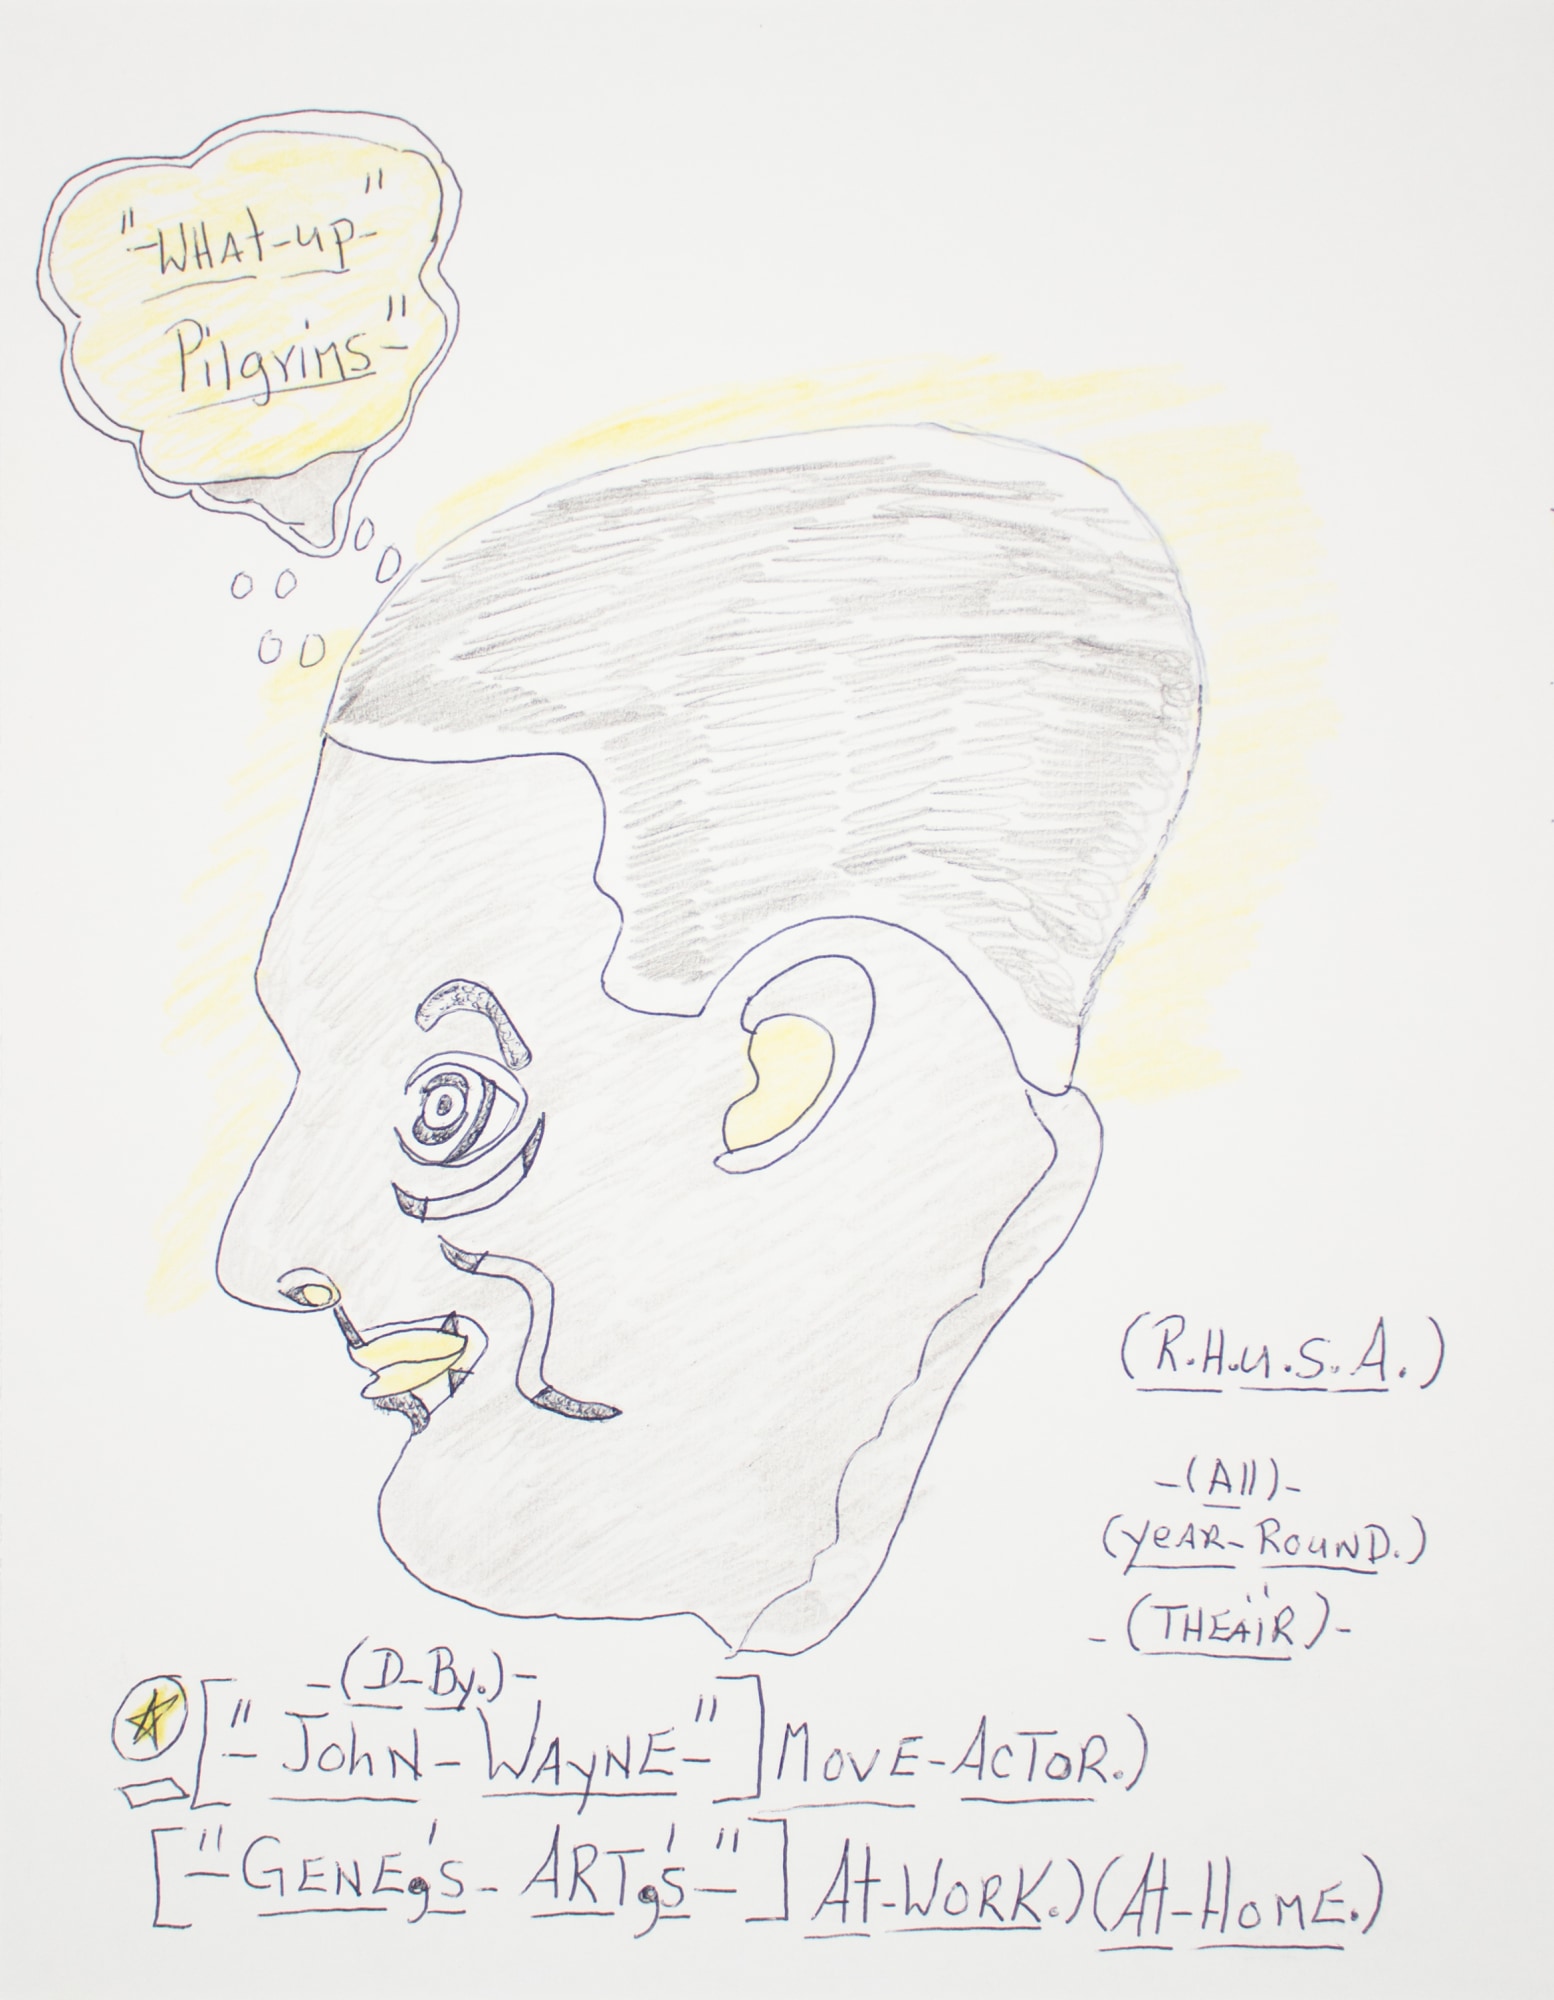 "-WHAt-up-"
Pilgrims-"
(R.H.u.S.A.)
-(All)-
(yeAR-ROUND.)
-(THEAïR)-
-(D-By.)-
["-JohN-WAyNE-"] MOVE-ACTOR.)
["-GENEg's-ARTg's-"] At-WORK.) (At-HOME.)